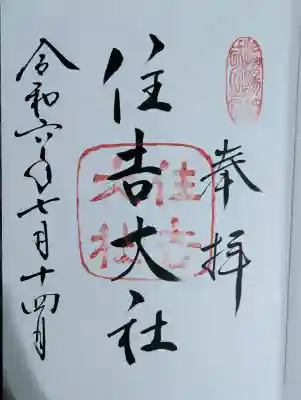 奉拝
住吉大社
住吉大社
令和六年七月十四日